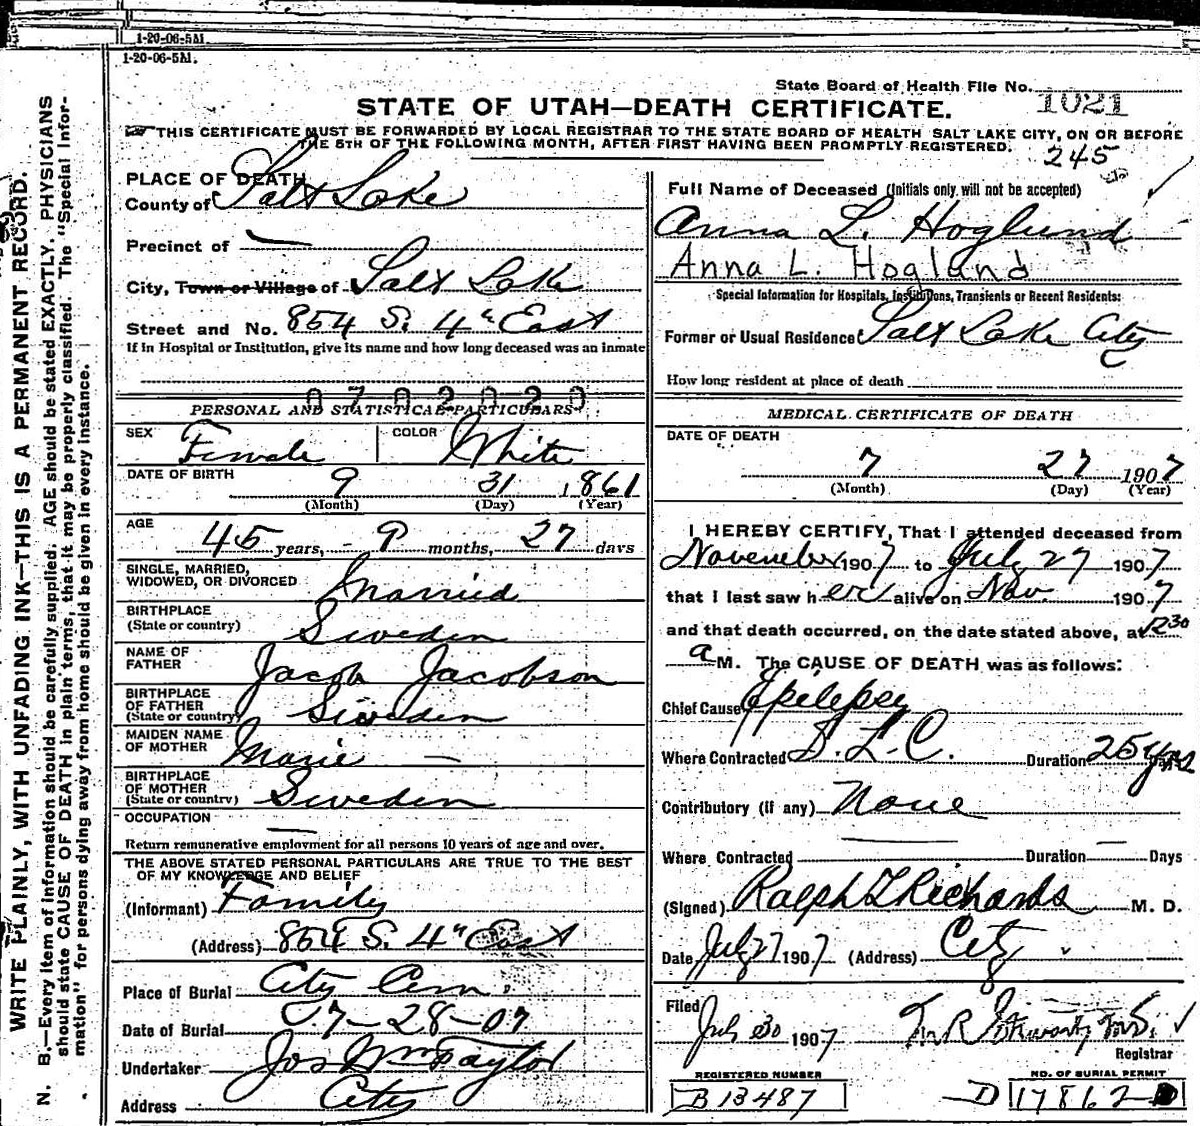 1-20-06-5M.
1-20-06-5M.
State Board of Health File No. 1021
STATE OF UTAH—DEATH CERTIFICATE.
THIS CERTIFICATE MUST BE FORWARDED BY LOCAL REGISTRAR TO THE STATE BOARD OF HEALTH SALT LAKE CITY, ON OR BEFORE
THE 5TH OF THE FOLLOWING MONTH, AFTER FIRST HAVING BEEN PROMPTLY REGISTERED.
245
WRITE PLAINLY, WITH UNFADING INK—THIS IS A PERMANENT RECORD.
N. B.—Every item of information should be carefully supplied. AGE should be stated EXACTLY. PHYSICIANS
should state CAUSE OF DEATH in plain terms, that it may be properly classified. The "Special Infor-
mation" for persons dying away from home should be given in every instance.
PLACE OF DEATH
County of Salt Lake
Precinct of —
City, Town or Village of Salt Lake
Street and No. 854 S. 4" East
If in Hospital or Institution, give its name and how long deceased was an inmate
0702020
PERSONAL AND STATISTICAL PARTICULARS
SEX Female COLOR White
DATE OF BIRTH 9 31 1861
(Month) (Day) (Year)
AGE 45 years, 9 months, 27 days
SINGLE, MARRIED,
WIDOWED, OR DIVORCED Married
BIRTHPLACE
(State or country) Sweden
NAME OF
FATHER Jacob Jacobson
BIRTHPLACE
OF FATHER
(State or country) Sweden
MAIDEN NAME
OF MOTHER Marie —
BIRTHPLACE
OF MOTHER
(State or country) Sweden
OCCUPATION —
Return remunerative employment for all persons 10 years of age and over.
THE ABOVE STATED PERSONAL PARTICULARS ARE TRUE TO THE BEST
OF MY KNOWLEDGE AND BELIEF
(Informant) Family
(Address) 854 S. 4" East
Place of Burial City Cem.
Date of Burial 7-28-07
Undertaker Jos Wm Taylor
Address City
Full Name of Deceased (Initials only will not be accepted)
Anna L. Hoglund
Anna L. Hoglund
Special Information for Hospitals, Institutions, Transients or Recent Residents:
Former or Usual Residence Salt Lake City
How long resident at place of death
MEDICAL CERTIFICATE OF DEATH
DATE OF DEATH
7 27 1907
(Month) (Day) (Year)
I HEREBY CERTIFY, That I attended deceased from
November 1907 to July 27 1907
that I last saw her alive on Nov. 1907
and that death occurred, on the date stated above, at 12 30
a M. The CAUSE OF DEATH was as follows:
Chief Cause Epilepsy
Where Contracted S. L. C. Duration 25 yrs
Contributory (if any) None
Where Contracted Duration — Days
(Signed) Ralph T Richards M. D.
Date July 27 1907 (Address) City
Filed July 30 1907
Registrar
REGISTERED NUMBER
B 13487
NO. OF BURIAL PERMIT
D 17862